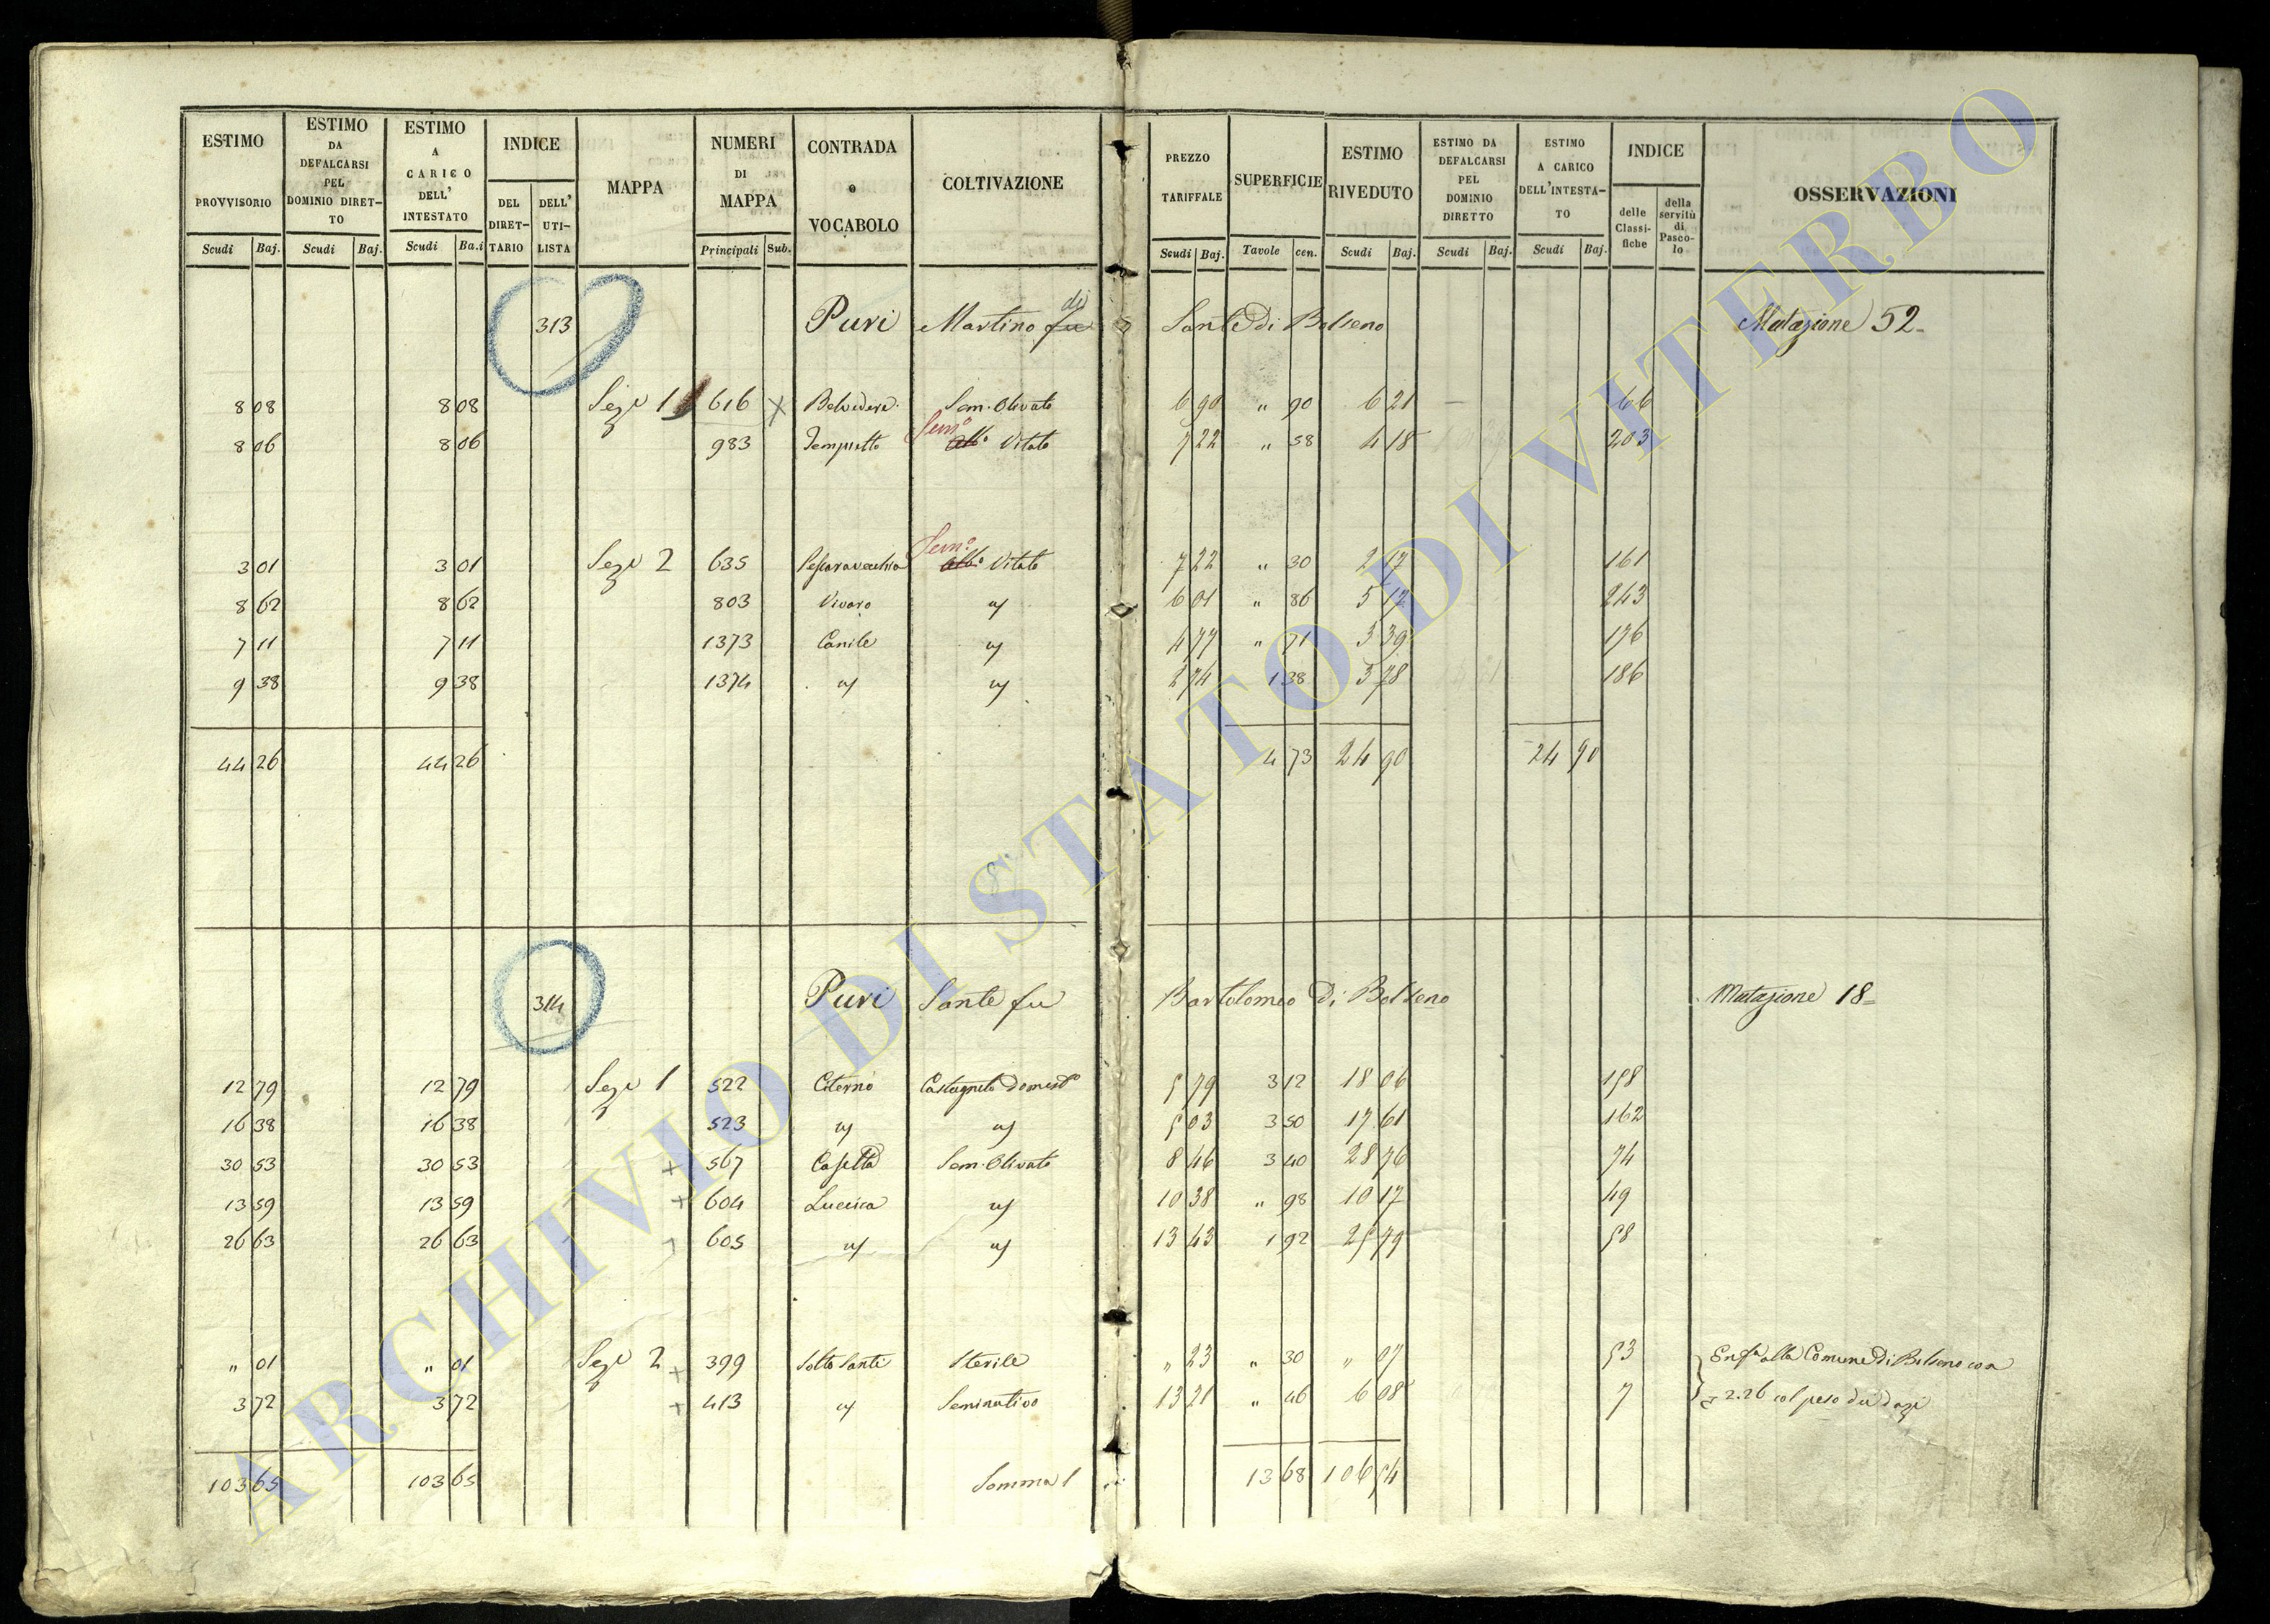 ESTIMO PROVVISORIO Scudi Baj.
ESTIMO DA DEFALCARSI PEL DOMINIO DIRET-TO Scudi Baj.
ESTIMO A CARICO DELL' INTESTATO Scudi Ba.i
INDICE DEL DIRET-TARIO DELL' UTI-LISTA
MAPPA
NUMERI DI MAPPA Principali Sub.
CONTRADA o VOCABOLO
COLTIVAZIONE
PREZZO TARIFFALE Scudi Baj.
SUPERFICIE Tavole cen.
ESTIMO RIVEDUTO Scudi Baj.
ESTIMO DA DEFALCARSI PEL DOMINIO DIRETTO Scudi Baj.
ESTIMO A CARICO DELL'INTESTA-TO Scudi Baj.
INDICE delle Classi-fiche della servitù di Pasco-lo
OSSERVAZIONI
313 Puri Martino fu di Sante Di Bolseno Mutazione 52
8 08 8 08 Sez.e 1 616 Belvedere Sem. Olivato 6 90 " 90 6 21 66
8 06 8 06 983 Tempietto Sem.o alb.o Vitato 7 22 " 58 4 18 203
3 01 3 01 Sez.e 2 635 Pescaravecchia Sem.o alb.o Vitato 7 22 " 30 2 17 161
8 62 8 62 803 Vivaro " 6 01 " 86 5 17 243
7 11 7 11 1373 Canile " 4 77 " 71 3 39 176
9 38 9 38 1374 " " 2 74 1 38 3 78 186
44 26 44 26 4 73 24 90 24 90
314 Puri Sante fu Bartolomeo Di Bolseno Mutazione 18
12 79 12 79 Sez.e 1 522 Citerno Castagneto Domest.o 5 79 3 12 18 06 158
16 38 16 38 523 " " 5 03 3 50 17 61 162
30 53 30 53 + 567 Casetta Sem. Olivato 8 46 3 40 28 76 74
13 59 13 59 + 604 10 38 " 98 10 17 49
26 63 26 63 605 " " 13 43 1 92 25 79 58
" 01 " 01 Sez.e 2 + 399 Sotto Santi Sterile " 23 " 30 " 07 53 Enf.a alla Comune Di Bolseno con
3 72 3 72 + 413 " Seminativo 13 21 " 46 6 08 7 2.26 col peso dei dazi
103 65 103 65 Somma 1 13 68 106 54
ARCHIVIO DI STATO DI VITERBO